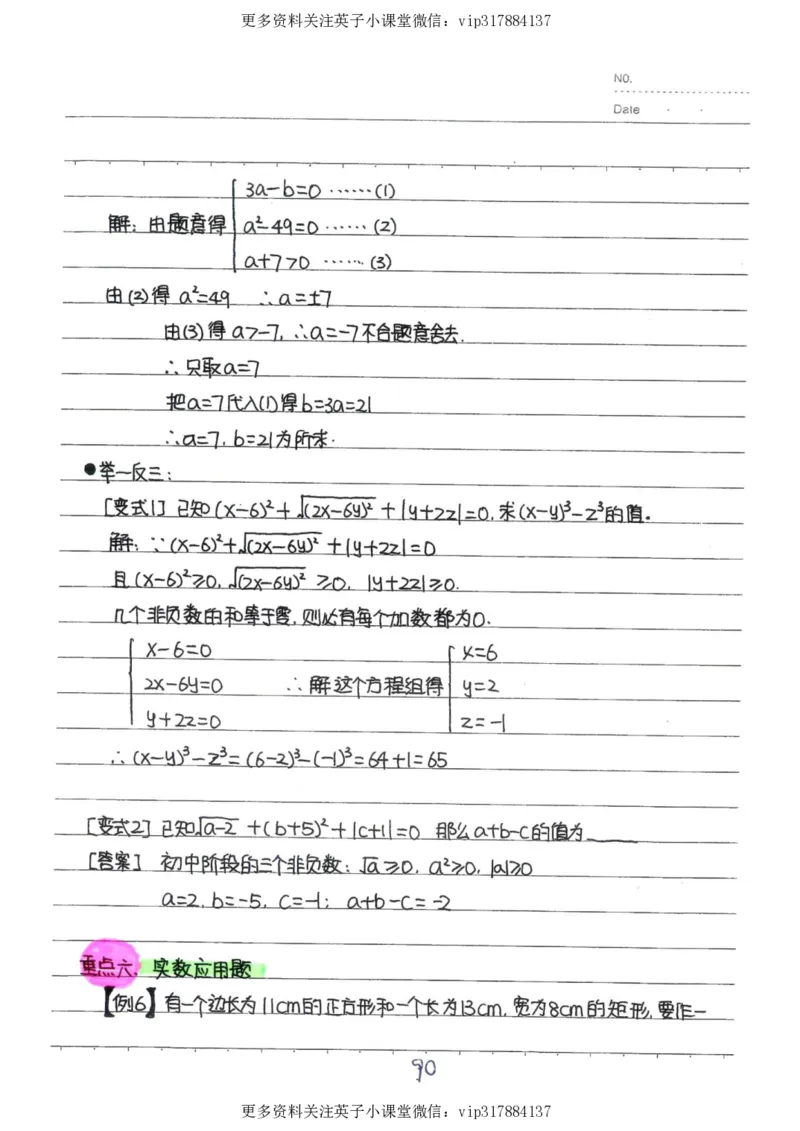 更多资料关注英子小课堂微信：vip317884137
NO.
Date
3a-b=0 ……(1)
解：由题意得 a²-49=0 …… (2)
a+7>0 …… (3)
由(2)得 a²=49 ∴a=±7
由(3)得 a>-7, ∴a=-7不合题意舍去.
∴只取a=7
把a=7代入(1)得b=3a=21
∴a=7, b=21为所求.
●举一反三：
[变式1] 已知(x-6)²+√(2x-6y)²+|y+2z|=0, 求(x-y)³-z³的值。
解：∵(x-6)²+√(2x-6y)²+|y+2z|=0
且(x-6)²≥0, √(2x-6y)² ≥0, |y+2z|≥0.
几个非负数的和等于零, 则必有每个加数都为0.
x-6=0 x=6
2x-6y=0 ∴解这个方程组得 y=2
y+2z=0 z=-1
∴(x-y)³-z³=(6-2)³-(-1)³=64+1=65
[变式2] 已知√a-2 +(b+5)²+|c+1|=0 那么a+b-c的值为____
[答案] 初中阶段的三个非负数：√a≥0, a²≥0, |a|≥0
a=2, b=-5, c=-1; a+b-c=-2
重点六. 实数应用题
【例6】有一个边长为11cm的正方形和一个长为13cm, 宽为8cm的矩形, 要作一
90
更多资料关注英子小课堂微信：vip317884137